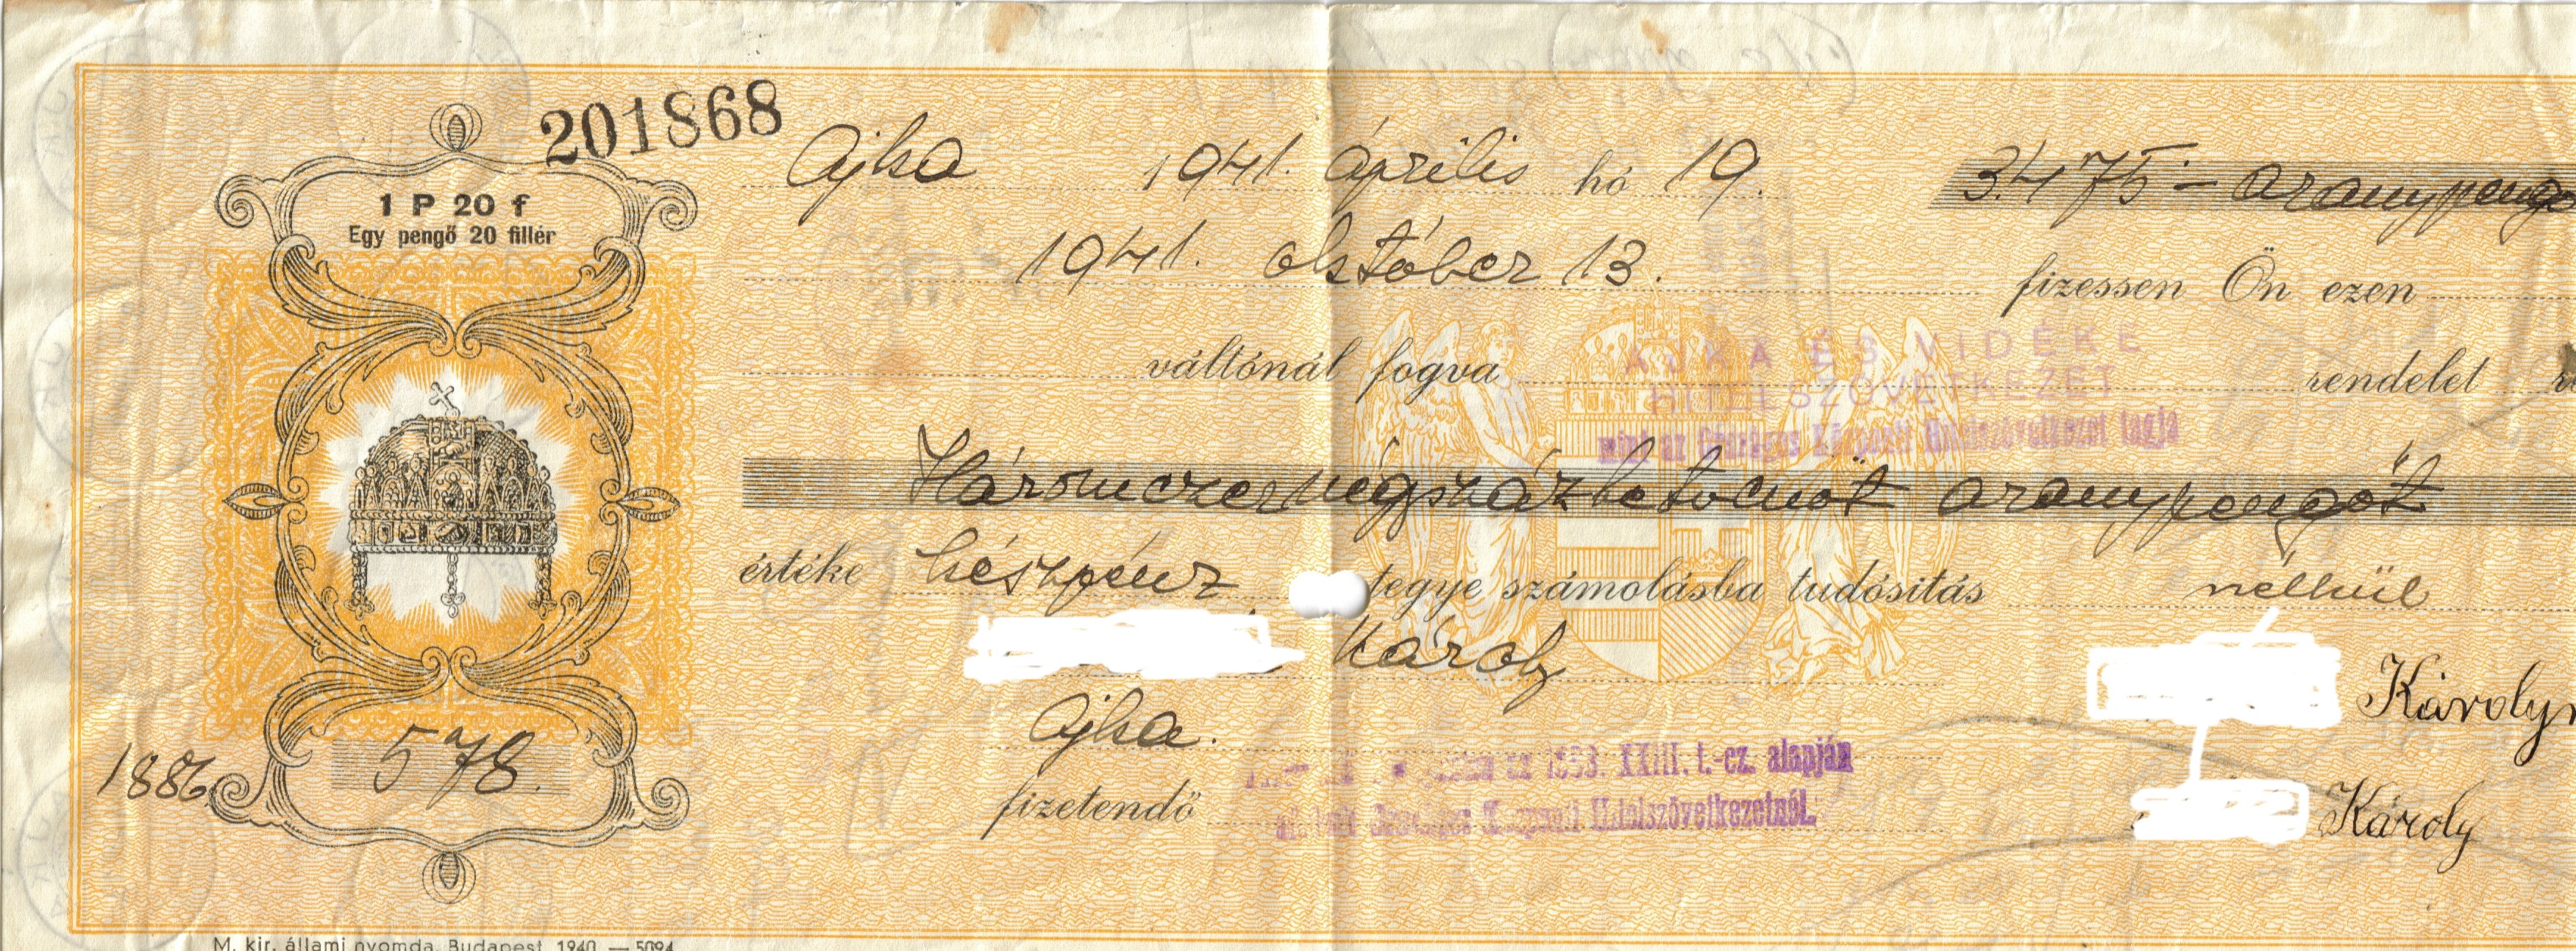 201868
1 P 20 f
Egy pengő 20 fillér
Ajka 1941. április hó 19. 3.475 – aranypengő
1941. október 13. fizessen Ön ezen
váltónál fogva AJKA ÉS VIDÉKE rendelet
HITELSZÖVETKEZET
mint az Országos Központi Hitelszövetkezet tagja
Háromezernégyszázhetvenöt aranypengőt
értéke készpénz tegye számolásba tudósitás nélkül
Károly
Károlyn
Ajka.
az 1898. XXIII. t.-cz. alapján
fizetendő Országos Központi Hitelszövetkezetnél.
Károly
1886
578.
M. kir. állami nyomda, Budapest, 1940. — 5094